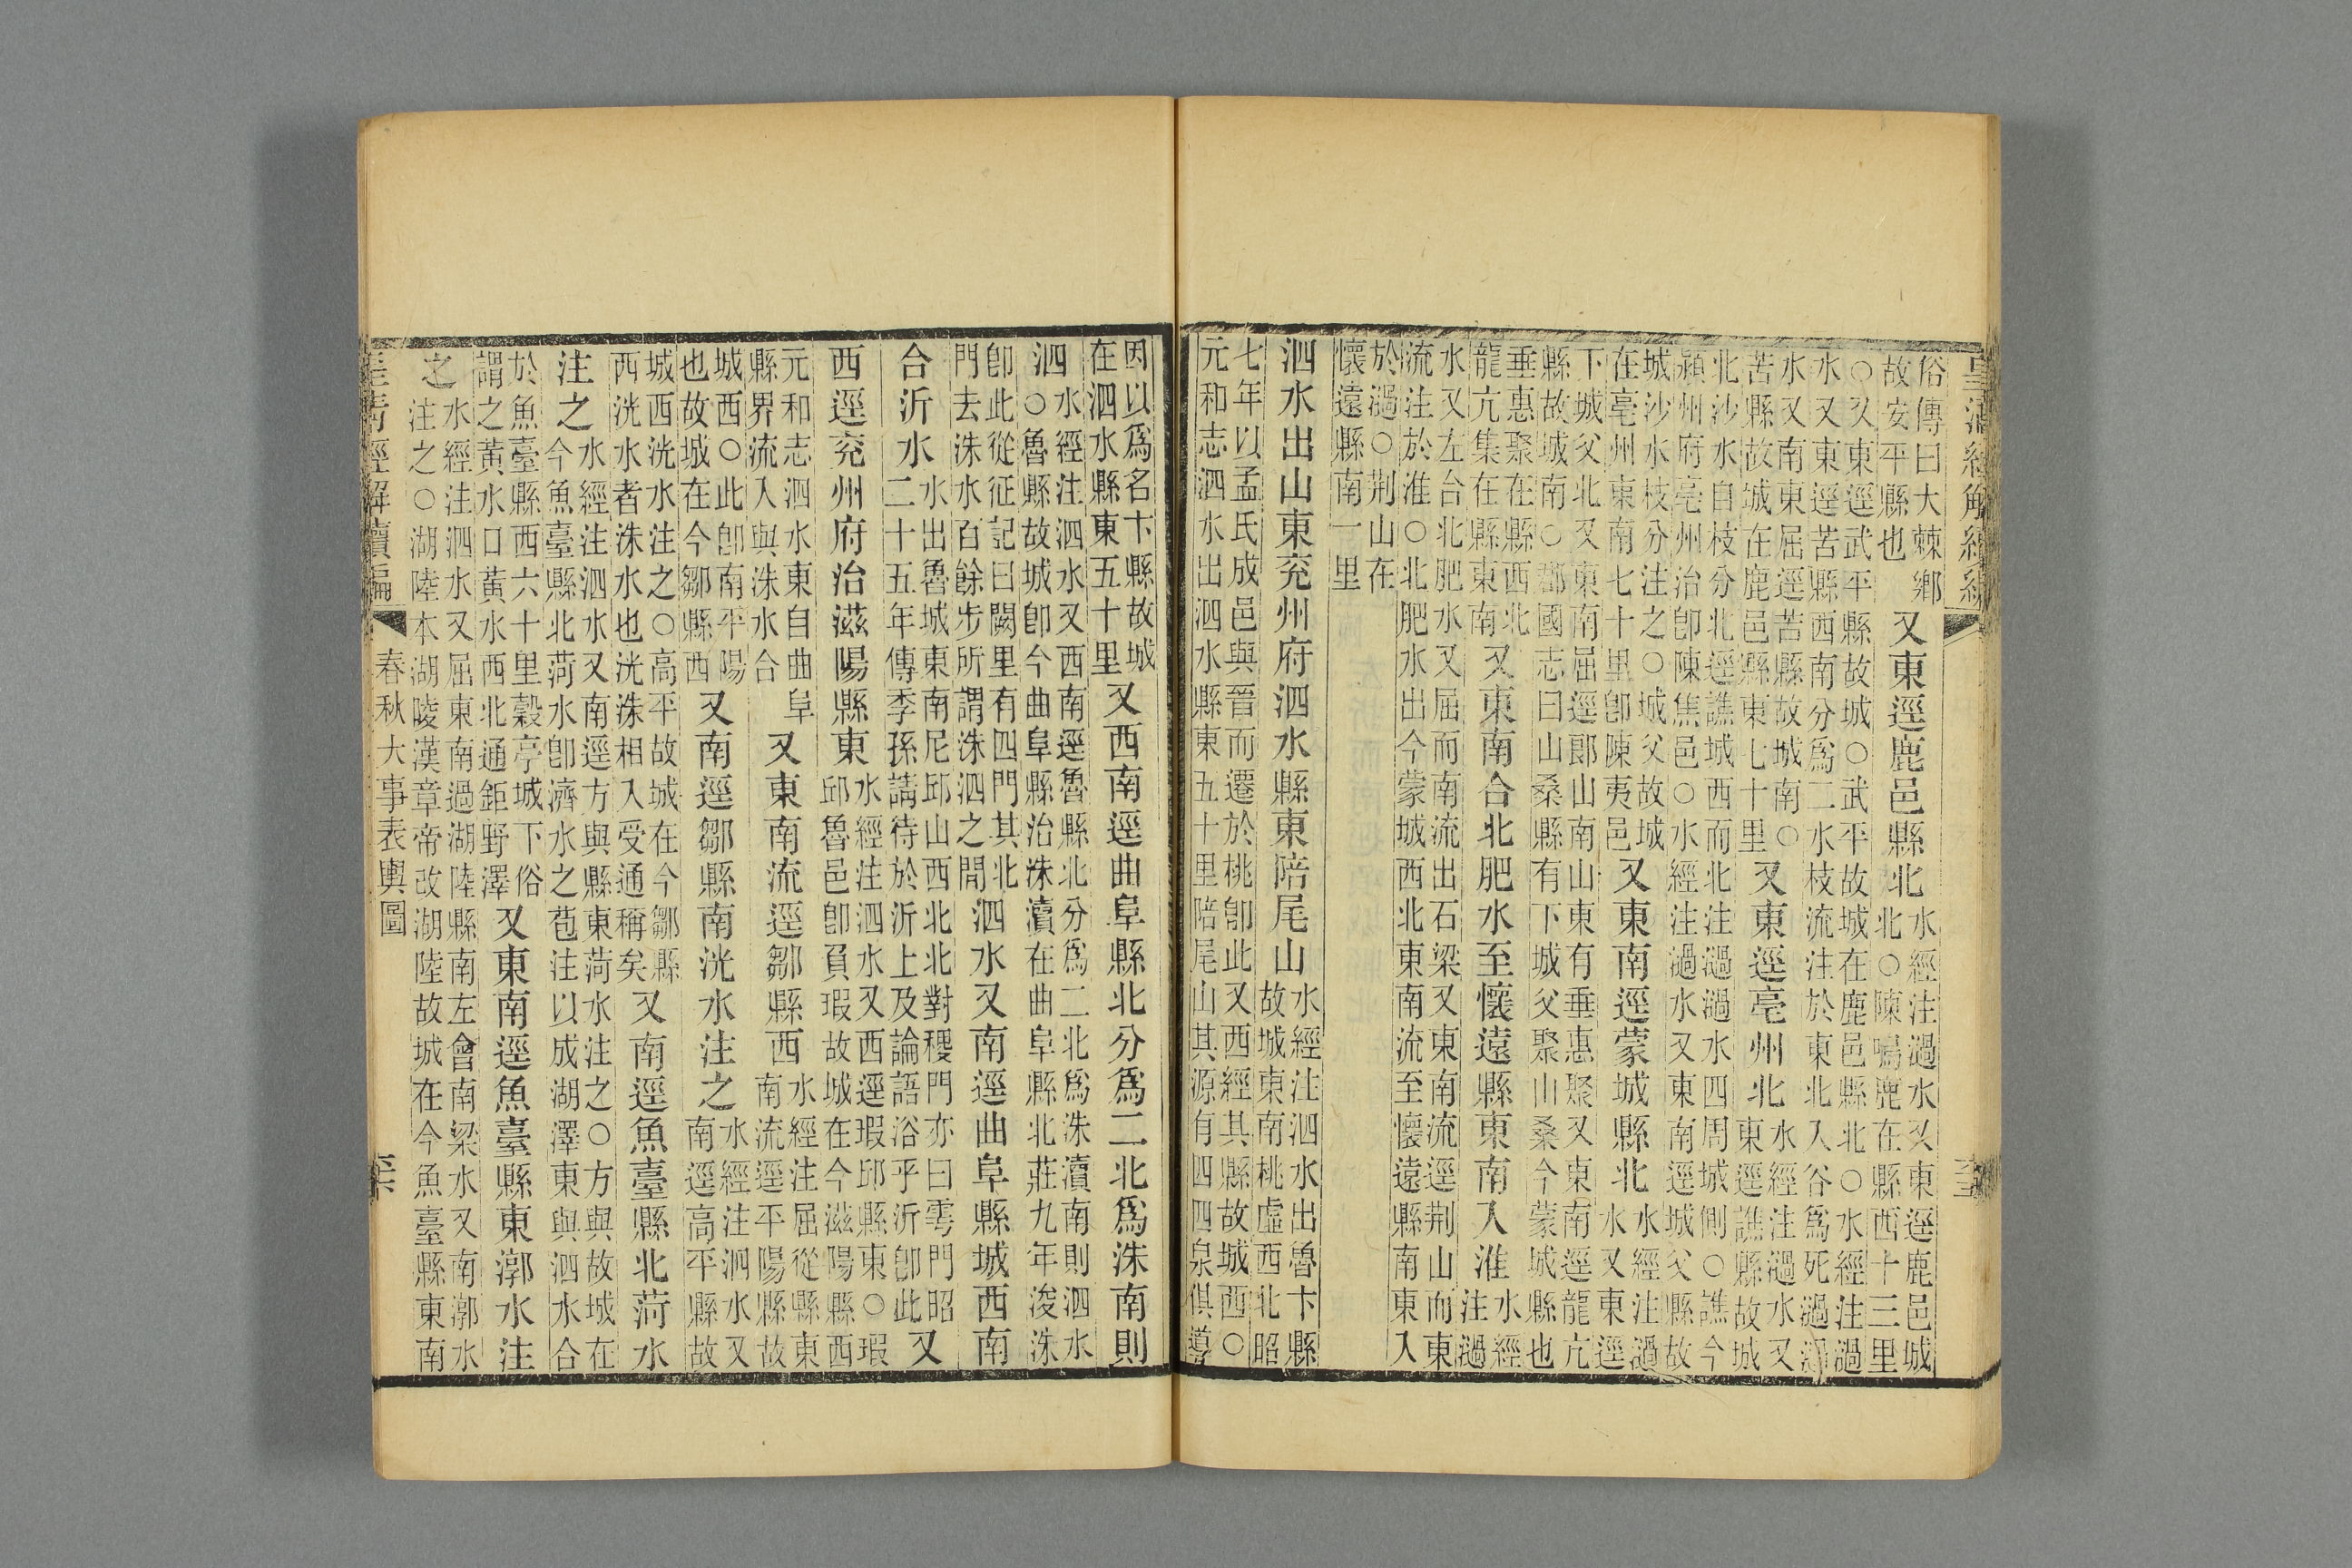 皇清經解續編
俗傳曰大棘鄉
故安平縣也
又東逕鹿邑縣北
水經注濄水又東逕鹿邑城
北○陳鳴鹿在縣西十三里
○又東逕武平縣故城○武平故城在鹿邑縣北○水經注濄
水又東逕苦縣西南分爲二水枝流注於東北入谷爲死濄濄
水又南東屈逕苦縣故城南○
苦縣故城在鹿邑縣東七十里
又東逕亳州北
水經注濄水又
東逕譙縣故城
北沙水自枝分北逕譙城西而北注濄濄水四周城側○譙今
潁州府亳州治卽陳焦邑○水經注濄水又東南逕城父縣故
城沙水枝分注之○城父故城
在亳州東南七十里卽陳夷邑
又東南逕蒙城縣北
水經注濄
水又東逕
下城父北又東南屈逕郎山南山東有垂惠聚又東南逕龍亢
縣故城南○郡國志曰山桑縣有下城父聚山桑今蒙城縣也
垂惠聚在縣西北
龍亢集在縣東南
又東南合北肥水至懷遠縣東南入淮
水經
注濄
水又左台北肥水又屈而南流出石梁又東南流逕荆山而東
流注於淮○北肥水出今蒙城西北東南流至懷遠縣南東入
於濄○荆山在
懷遠縣南一里
泗水出山東兖州府泗水縣東陪尾山
水經注泗水出魯卞縣
故城東南桃虛西北昭
七年以孟氏成邑與晉而遷於桃卽此又西經其縣故城西○
元和志泗水出泗水縣東五十里陪尾山其源有四四泉俱導
因以爲名卞縣故城
在泗水縣東五十里
又西南逕曲阜縣北分爲二北爲洙南則
泗
水經注泗水又西南逕魯縣北分爲二北爲洙瀆南則泗水
○魯縣故城卽今曲阜縣治洙瀆在曲阜縣北莊九年浚洙
卽此從征記曰闕里有四門其北
門去洙水百餘步所謂洙泗之閒
泗水又南逕曲阜縣城西南
合沂水
水出魯城東南尼邱山西北北對稷門亦曰雩門昭
二十五年傳季孫請待於沂上及論語浴乎沂卽此
又
西逕兖州府治滋陽縣東
水經注泗水又西逕瑕邱縣東○瑕
邱魯邑卽負瑕故城在今滋陽縣西
元和志泗水東自曲阜
縣界流入與洙水合
又東南流逕鄒縣西
水經注屈從縣東
南流逕平陽縣故
城西○此卽南平陽
也故城在今鄒縣西
又南逕鄒縣南洸水注之
水經注泗水又
南逕高平縣故
城西洸水注之○高平故城在今鄒縣
西洸水者洙水也洸洙相入受通稱矣
又南逕魚臺縣北菏水
注之
水經注泗水又南逕方與縣東菏水注之○方與故城在
今魚臺縣北菏水卽濟水之苞注以成湖澤東與泗水合
於魚臺縣西六十里穀亭城下俗
謂之黃水口黃水西北通鉅野澤
又東南逕魚臺縣東漷水注
之
水經注泗水又屈東南過湖陸縣南左會南梁水又南漷水
注之○湖陸本湖陵漢章帝改湖陸故城在今魚臺縣東南
皇清經解續編
春秋大事表輿圖